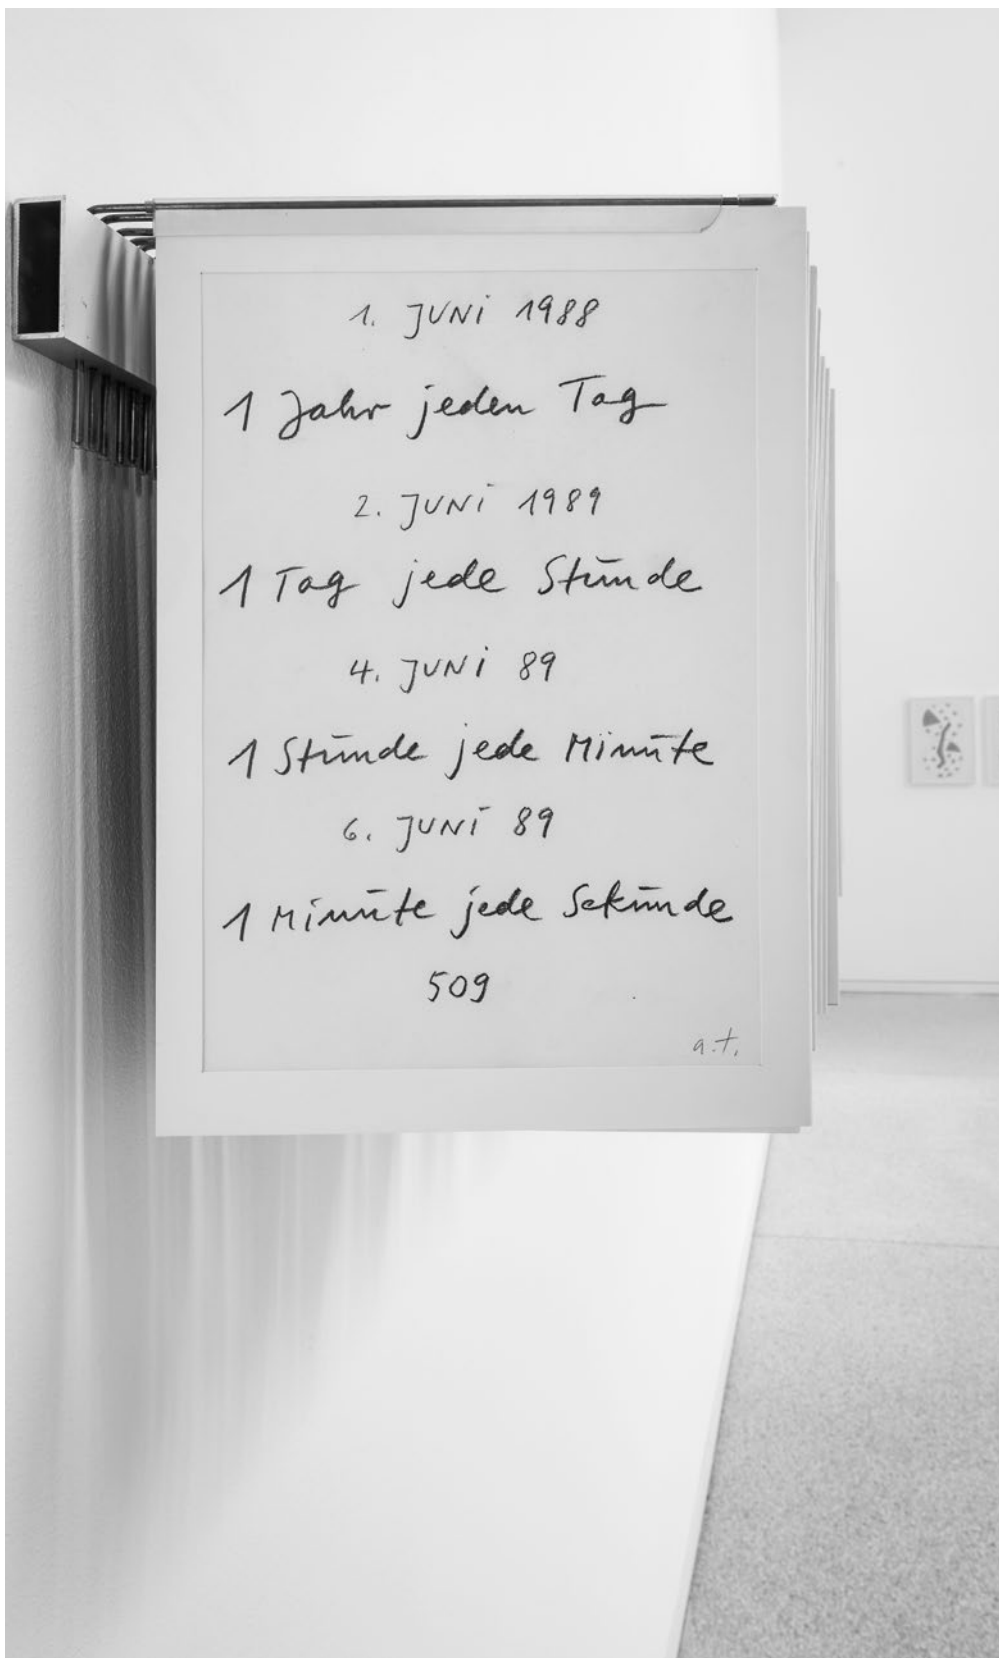 1. JUNi 1988
1 Jahr jeden Tag
2. JUNi 1989
1 Tag jede Stunde
4. JUNi 89
1 Stunde jede Minute
6. JUNi 89
1 Minute jede Sekunde
509
a.t.